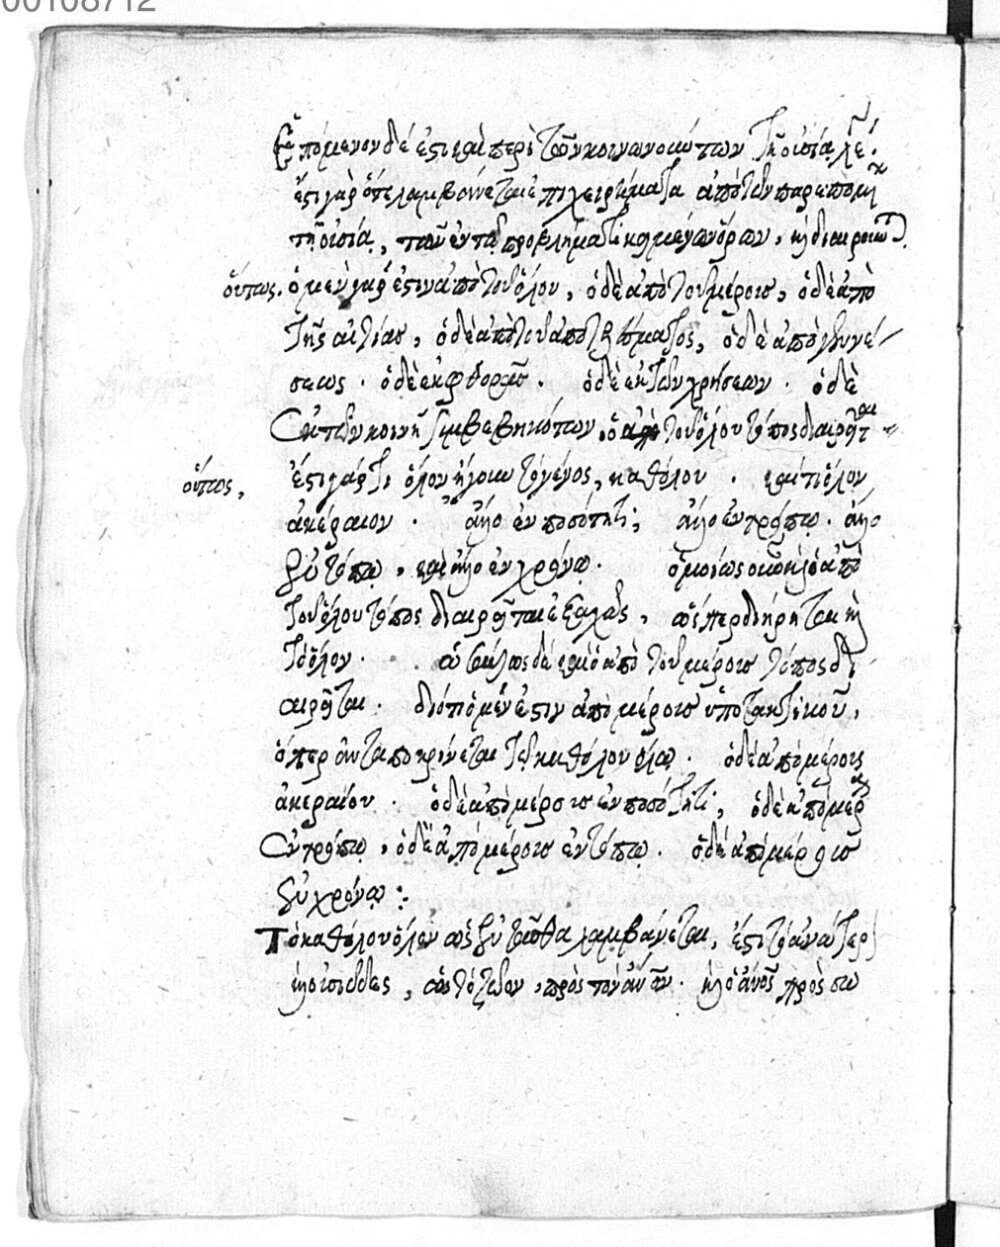 00108712
Ἑπόμενον δέ ἐστι καὶ περὶ τῶν κοινωνούντων τῇ οὐσίᾳ
ἔστι γὰρ ὅτε λαμβάνεται ἐπιχειρήματα ἀπὸ τῶν παρεπομ
τῇ οὐσίᾳ, τῶν ἐν τῷ προβλήματι
οὕτως. ὁ μὲν γάρ ἐστιν ἀπὸ τοῦ ὅλου, ὁ δὲ ἀπὸ τοῦ μέρους, ὁ δὲ ἀπὸ
τῆς αἰτίας, ὁ δὲ ἀπὸ τοῦ ἀποτελέσματος, ὁ δὲ ἀπὸ γενέ
σεως. ὁ δὲ ἐκ φθορᾶς. ὁ δὲ ἐκ τῶν χρήσεων. ὁ δὲ
ἐκ τῶν κοινῇ συμβεβηκότων, ὁ ἀπὸ τοῦ ὅλου τόπος διαιρεῖται
οὕτως, ἔστι γάρ τι ὅλον ἤγουν τὸ γένος, καθόλου. καί τι ὅλον
ἀκέραιον. ἄλλο ἐν ποσότητι; ἄλλο ἐν τρόπῳ. ἄλλο
ἐν τόπῳ, καὶ ἄλλο ἐν χρόνῳ. ὁμοίως οὖν καὶ ὁ ἀπὸ
τοῦ ὅλου τόπος διαιρεῖται ἑξαχῶς, ὥσπερ διῄρηται καὶ
τὸ ὅλον. ὡσαύτως δὲ καὶ ὁ ἀπὸ τοῦ μέρους τόπος δι
αιρεῖται. διότι ὁ μέν ἐστιν ἀπὸ μέρους ὑποτακτικοῦ,
ὅπερ ἀνταποκρίνεται τῷ καθόλου ὅλῳ. ὁ δὲ ἀπὸ μέρους
ἀκεραίου. ὁ δὲ ἀπὸ μέρους ἐν ποσότητι; ὁ δὲ ἀπὸ μέρ
ἐν τρόπῳ, ὁ δὲ ἀπὸ μέρους ἐν τόπῳ. ὁ δὲ ἀπὸ μέρους
ἐν χρόνῳ:
Τὸ καθόλου ὅλον ὡς ἐνταῦθα λαμβάνεται, ἐστι τὸ ἀνώτερ
οὐσιῶδες, ὡς τὸ ζῶον, πρὸς τὸν ἄνον. καὶ ὁ ἄνος πρὸς σω